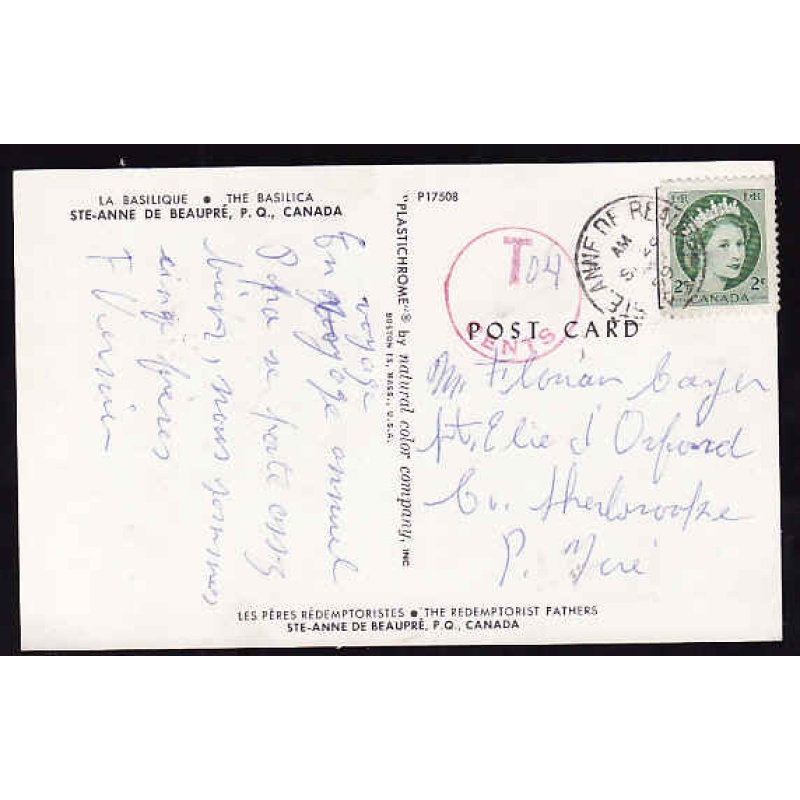 LA BASILIQUE • THE BASILICA
STE-ANNE DE BEAUPRÉ, P. Q., CANADA
En voyage annuel
Papa se porte assez
bien, nous sommes
cinq frères
F
"PLASTICHROME"® by natural color company, INC
BOSTON 15, MASS., U.S.A.
P17508
T 04
CENTS
STE ANNE DE BEAU
AM
E II R E II R
2 CANADA 2c
POST CARD
Mr Florian
St. Elie d'Orford
Co. Sherbrooke
P.
LES PÈRES RÉDEMPTORISTES • THE REDEMPTORIST FATHERS
STE-ANNE DE BEAUPRÉ, P.Q., CANADA